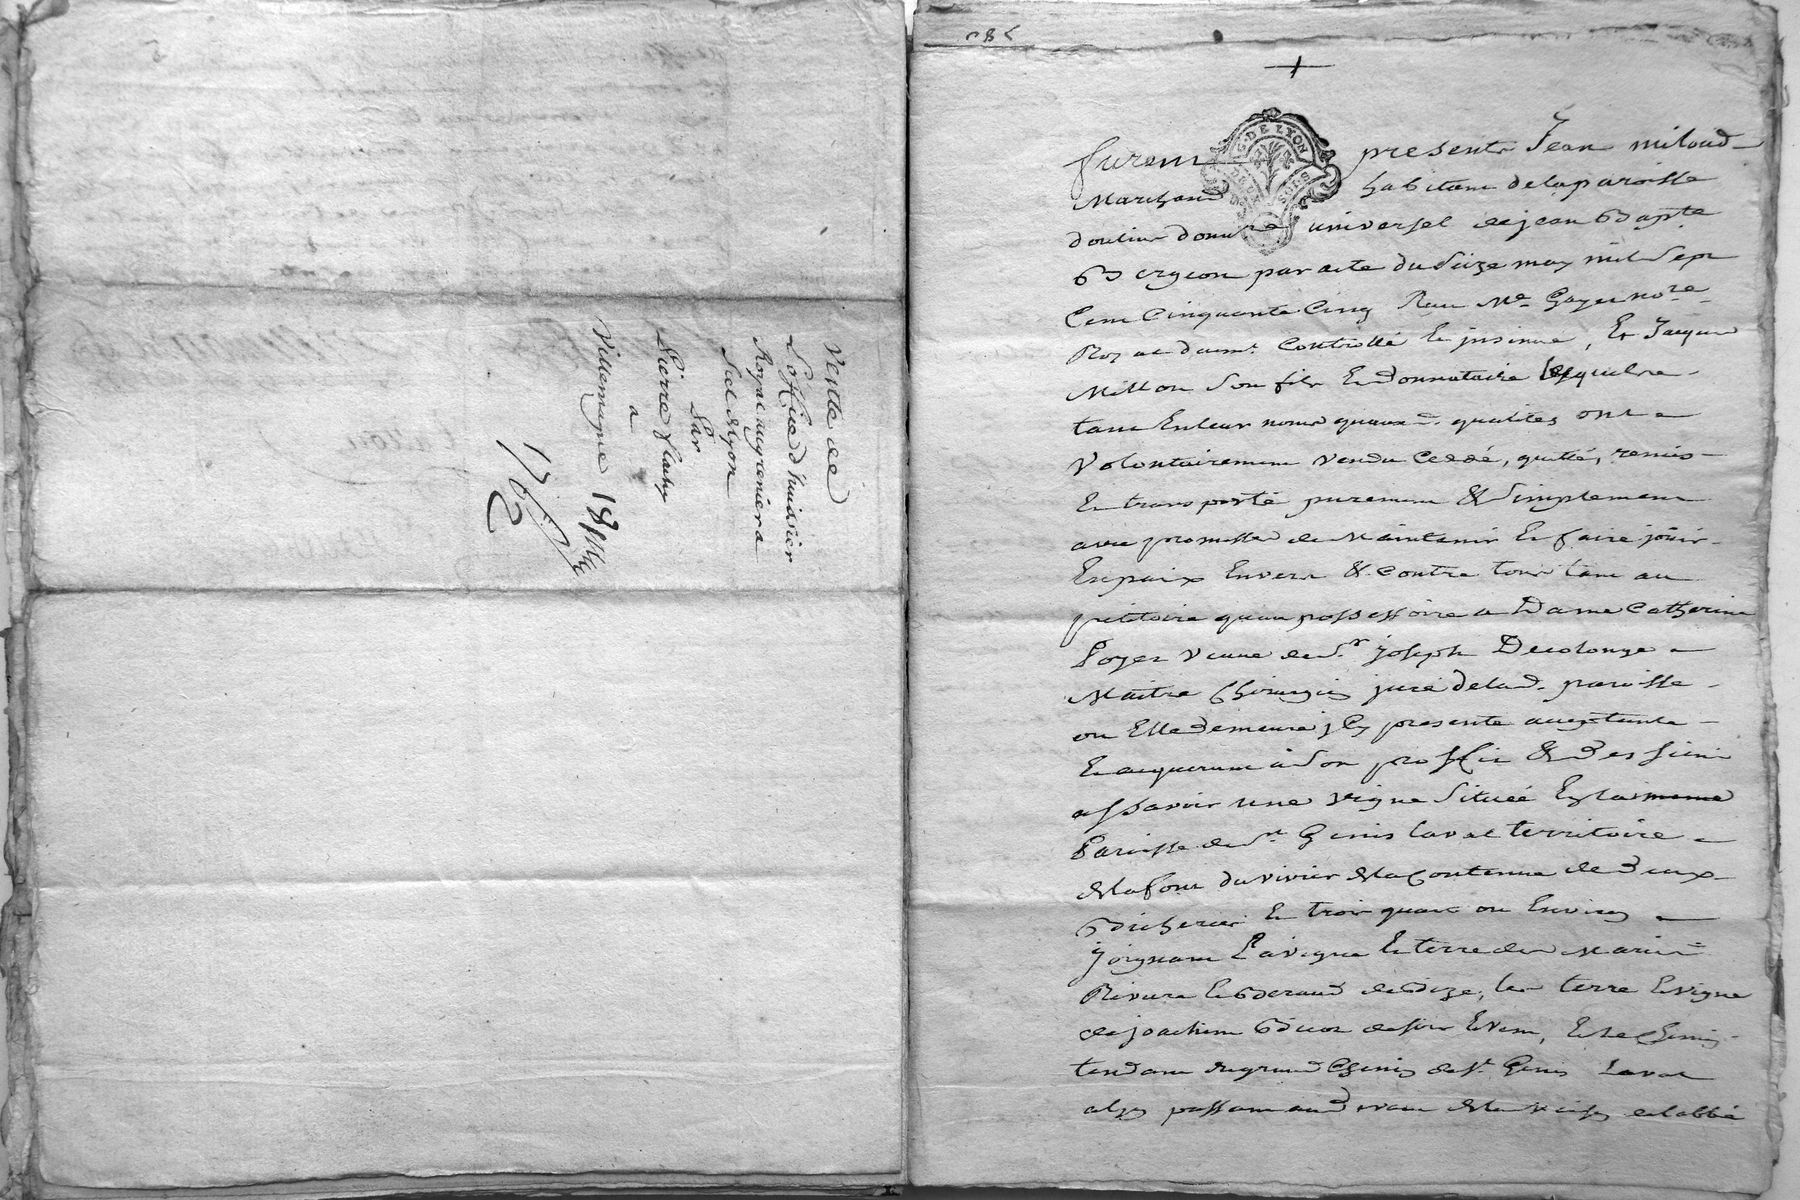 Vente de
Loffice d'huissier
Royal au grenier a
Sel de Lyon
Par
Pierre flachy
a
Villemagne 18
1765
G. DE LYON
furent presents Jean miloud
Marchand habitant de la paroisse
doulin donnre universel de jean Baptte
Bergeon par acte du seize may mil sept
Cent Cinquante Cinq Reçu Me Goyet nore
Royal Controllé et insinué, Et Jacques
Millon son fils Et donnataire
tant En leur noms quaux d. qualités ont
Volontairement vendu Ceddé, quitté, remis
Et transporté purement & simplement
avec promesse de Maintenir Et faire jouir
En paix Envers & Contre tous tant au
petitoire quau possessoire a Dame Catherine
Poyet veuve de Sr. joseph Decolonge
Maitre Chirurgien juré de lad. paroisse
ou Elle demeure icy presente acceptante
Et acquerant a son proffit & des siens
assavoir une vigne Située En la meme
Paroisse de St. Genis laval territoire
de la font du vivier de la Contenue de deux
Bicherées Et trois quart ou Environ
joignant La vigne Et terre de Marie
Riviere Et de Bize, les terre Et vigne
de joachim de soir Et vent, Et le Chemin
tendant du grand Chemin de St. Genis Laval
passant au devant de la de labbé